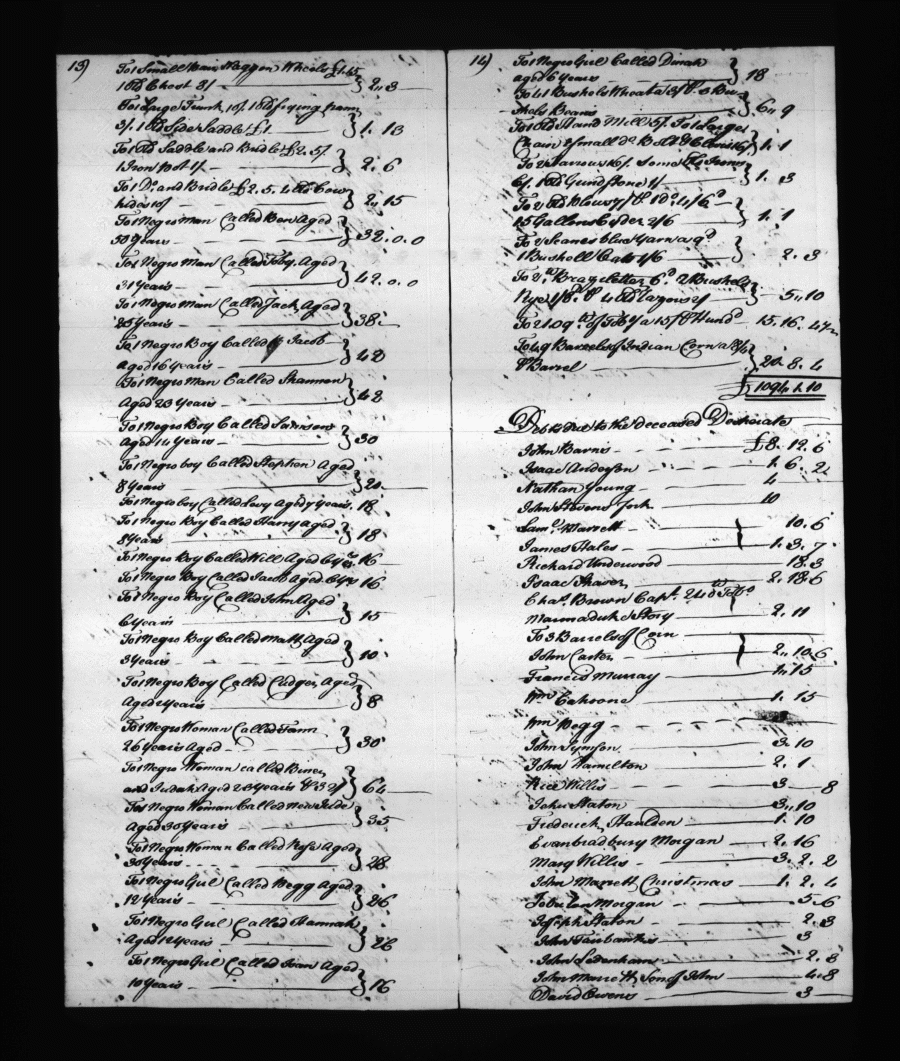 13)
To 1 Small pair Waggon Wheels £1.15
1 Old Chest 8/ — 2.3
To 1 Large Trunk 10/ 1 Old frying pan
3/. 1 Old Side Saddle £1 — 1.13
To 1 Old Saddle and Bridle £2.5/
1 Iron Pot 1/ — 2.6
To 1 Do. and Bridle £2.5. 4 Old Cow
hides 10/ — 2.15
To 1 Negro Man Called Ben Aged
50 Years — 32.0.0
To 1 Negro Man Called Toby Aged
31 Years — 42.0.0
To 1 Negro Man Called Jack, Aged
25 Years — 38
To 1 Negro Boy Called Jacob
aged 16 Years — 42
To 1 Negro Man Called Shannon
Aged 23 Years — 42
To 1 Negro Boy Called Samson
aged 14 Years — 30
To 1 Negro boy Called Stephen Aged
8 Years — 20
To 1 Negro boy Called Levy Aged 7 Years. 18
To 1 Negro Boy Called Harry Aged
8 Years — 18
To 1 Negro Boy Called Will Aged 6 Yrs 16
To 1 Negro Boy Called Jacob Aged 6 Yrs 16
To 1 Negro Boy Called John Aged
6 Years — 15
To 1 Negro Boy Called Matt Aged
3 Years — 10
To 1 Negro Boy Called Cudger Aged
Aged 2 Years — 8
To 1 Negro Woman Called
26 Years Aged — 30
To 1 Negro Woman called
and Judah Aged 23 Years & 32 — 64
To 1 Negro Woman Called New Jude
Aged 30 Years — 35
To 1 Negro Woman Called Rose Aged
30 Years — 28
To 1 Negro Girl Called Begg Aged
12 Years — 26
To 1 Negro Girl Called Hannah
Aged 12 Years — 26
To 1 Negro Girl Called Joan Aged
10 Years — 16
14)
To 1 Negro Girl Called Dinah
aged 6 Years — 18
To 41 Bushels Wheat a 3/ 3 Bu-
shels Beans — 6.9
To 1 Old Hand Mill 5/. To 1 Large
Chain & Small do. Bolt & Clevis 16/ 1.1
To 16/. Some Old Irons
6/. 1 Old Grind Stone 1/ — 1.3
To 2 Old Plows 1 do. 4/6
15 Gallons Cyder 2/6 — 1.1
To 2 Blue Yarn a 9d
1 Bushell Oats 1/6 — 2.3
To 2 6d. 2 Bushels
Rye 1/8 4 Old 2/ — 5.10
To 2109 lb of Tob'o a 15/ Hund'd — 15.16.4
To 49 Barrels of Indian Corn a 8/4
Barrel — 20.8.4
£1094.1.10
Debts due to the deceased Desperate
John Barns — £8.12.6
Isaac Anderson — 1.6.2
Nathan Young — 4
John Stevens — 10
Saml. Marrett — 10.6
James Hales — 1.3.7
Richard Underwood — 18.3
Isaac — 2.18.6
Chas. Brown Capt.
Marmaduke Story — 2.11
To 3 Barrels of Corn
John Carter — 2.10.6
Francis Murray — 1.15
Wm — 1.15
Wm Begg
John Symson — 3.10
John Hamelton — 2.1
Rice Willis — 3 — 8
John Staton — 3.10
Frederick — 1.10
Evan Bradbury Morgan — 2.16
Marg Willis — 3.2.2
John Marrett Christmas — 1.2.4
Morgan — 5.6
Joseph Staton — 2.3
John Fairbanks — 3
John Ledenham — 2.8
John Marrett, Son of John — 4.8
David Owens — 3